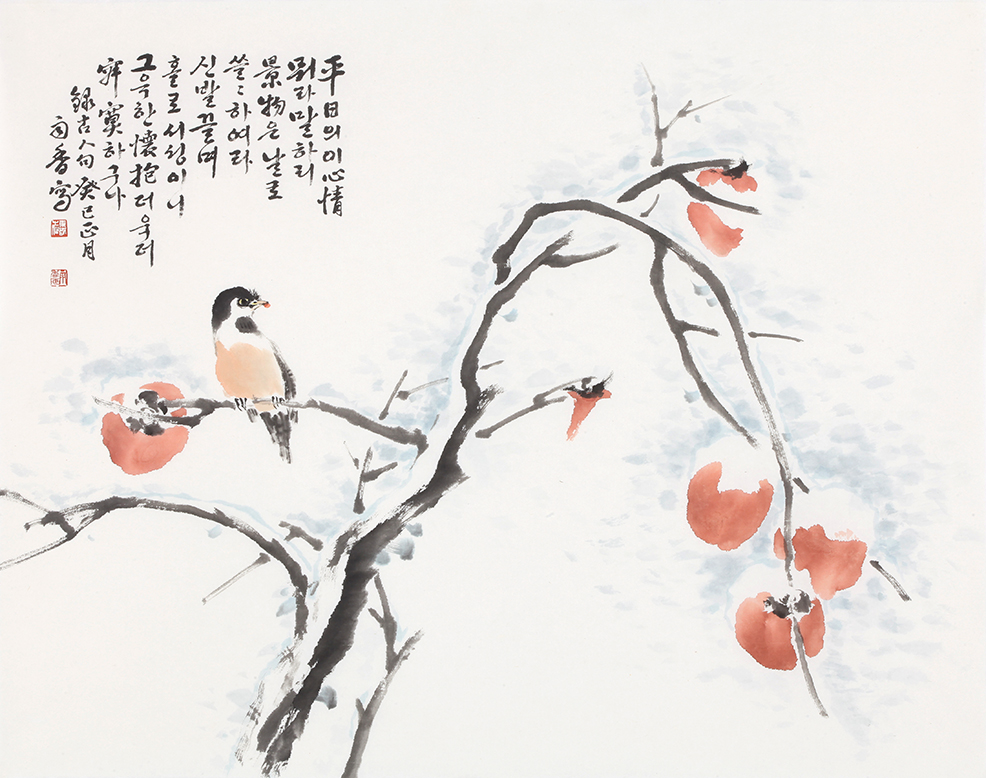 平日의 이 心情
뭐라 말하리
景物은 날로
쓸〻하여라
신발 끌며
홀로 서성이니
그윽한 懷抱 더욱 더
寂寞하구나
錄古人句 癸巳正月
雨香寫